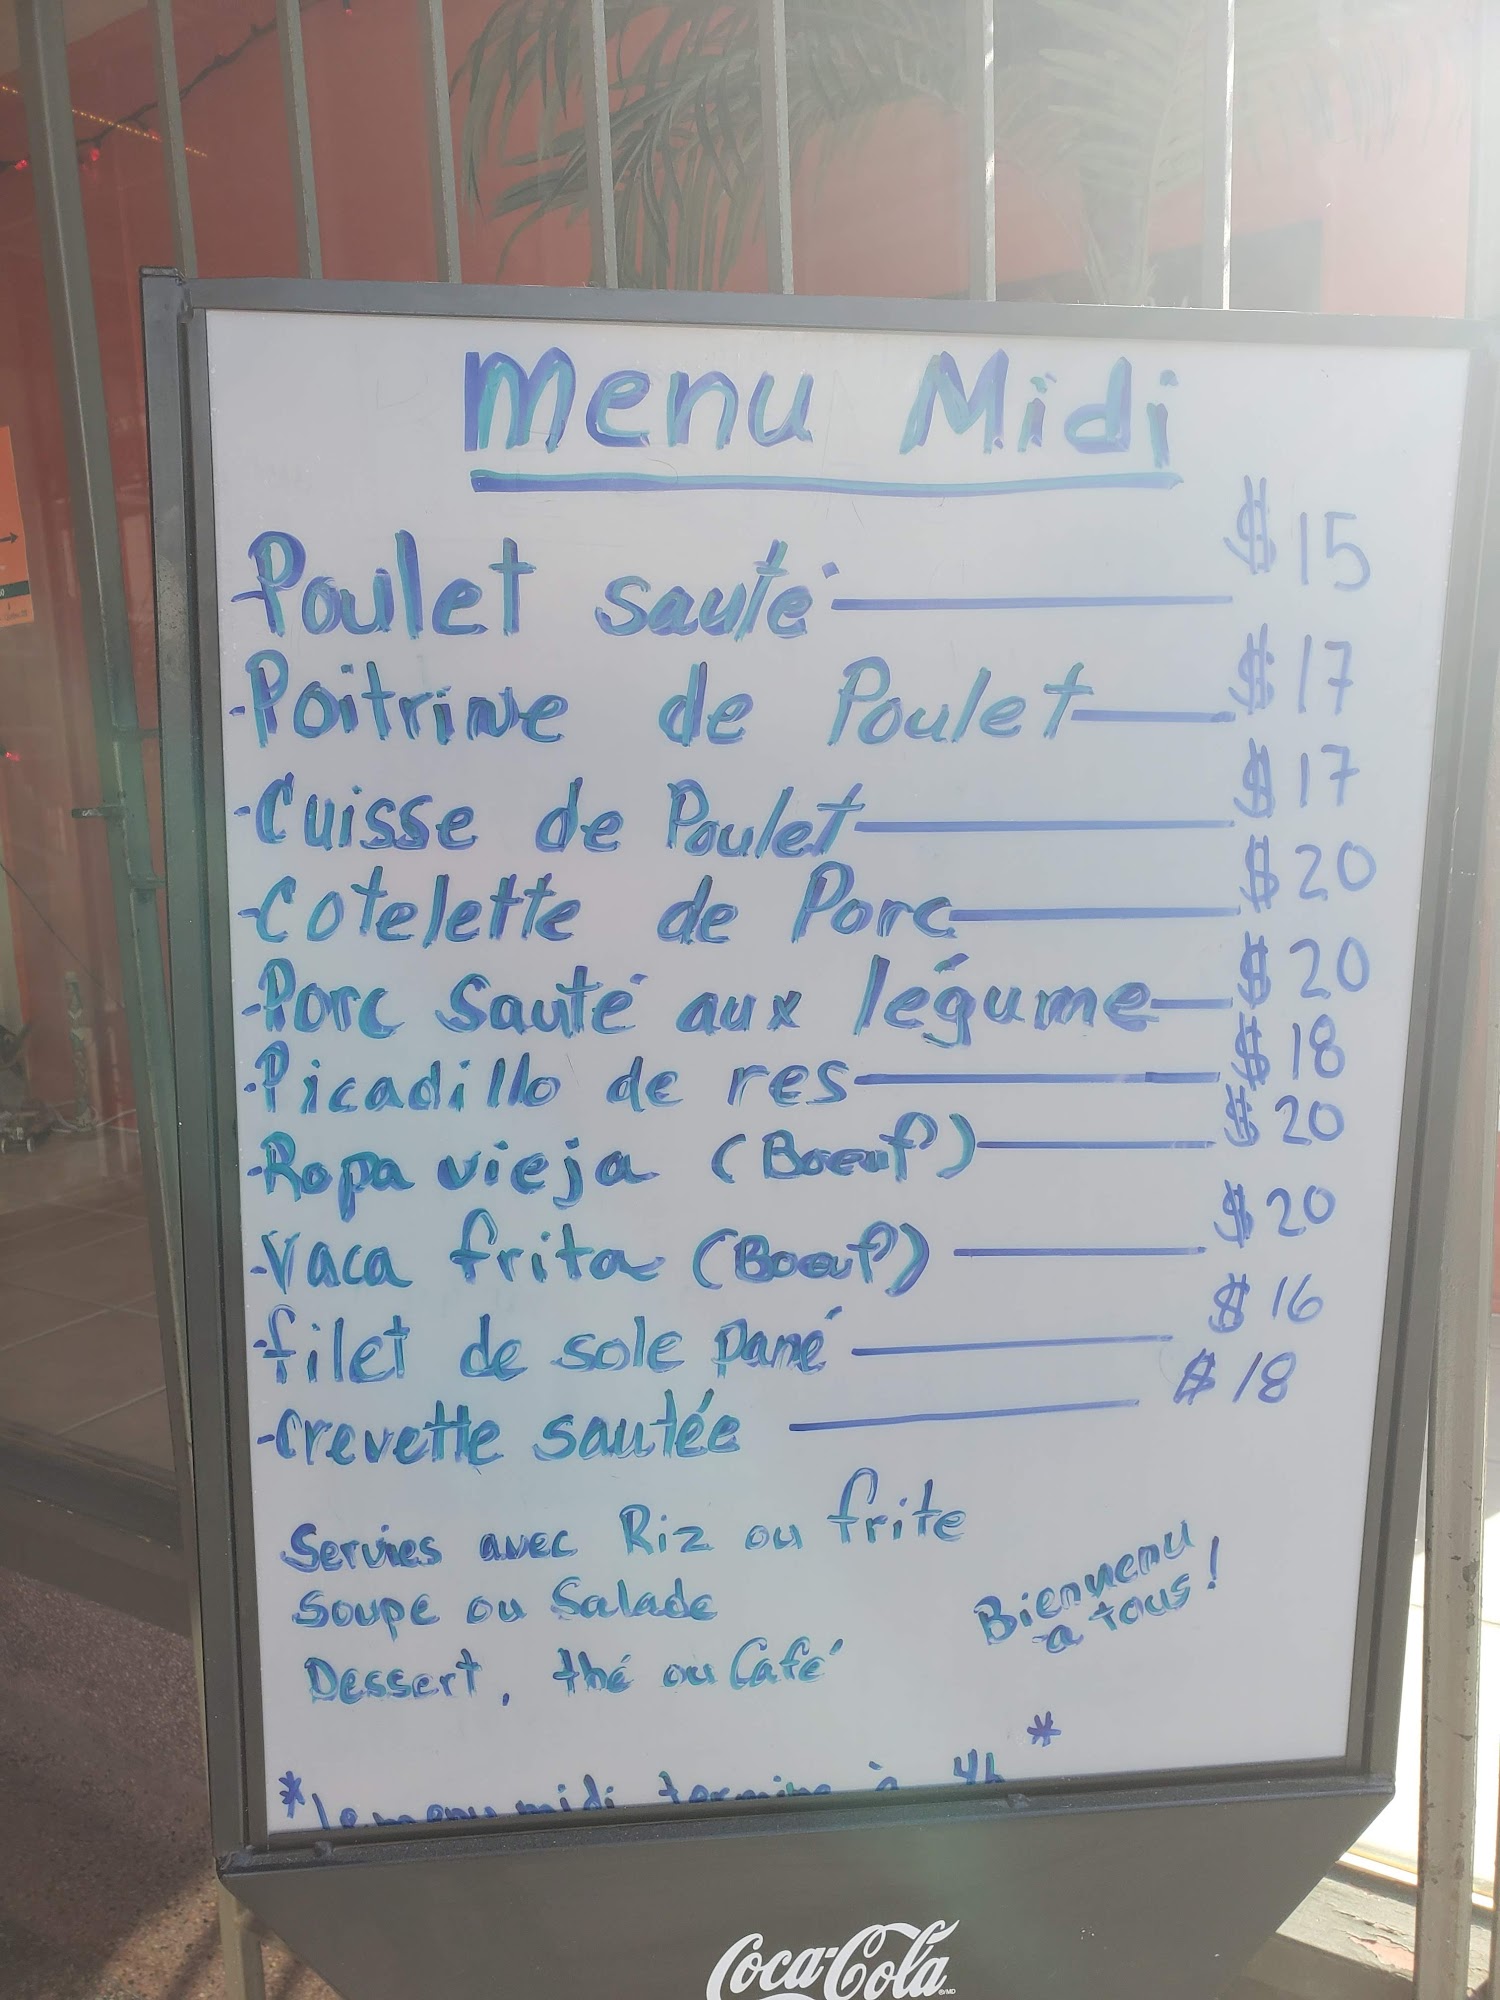 Menu Midi
Poulet sauté $15
-Poitrine de Poulet $17
-Cuisse de Poulet $17
-Cotelette de Porc $20
-Porc Sauté aux légume $20
-Picadillo de res $18
-Ropa vieja (Boeuf) $20
-Vaca frita (Boeuf) $20
-filet de sole pané $16
-Crevette sautée $18
Servies avec Riz ou frite
Soupe ou Salade
Dessert, thé ou Café
Bienvenu
a tous!
*le menu midi termine à 4h *
Coca-Cola